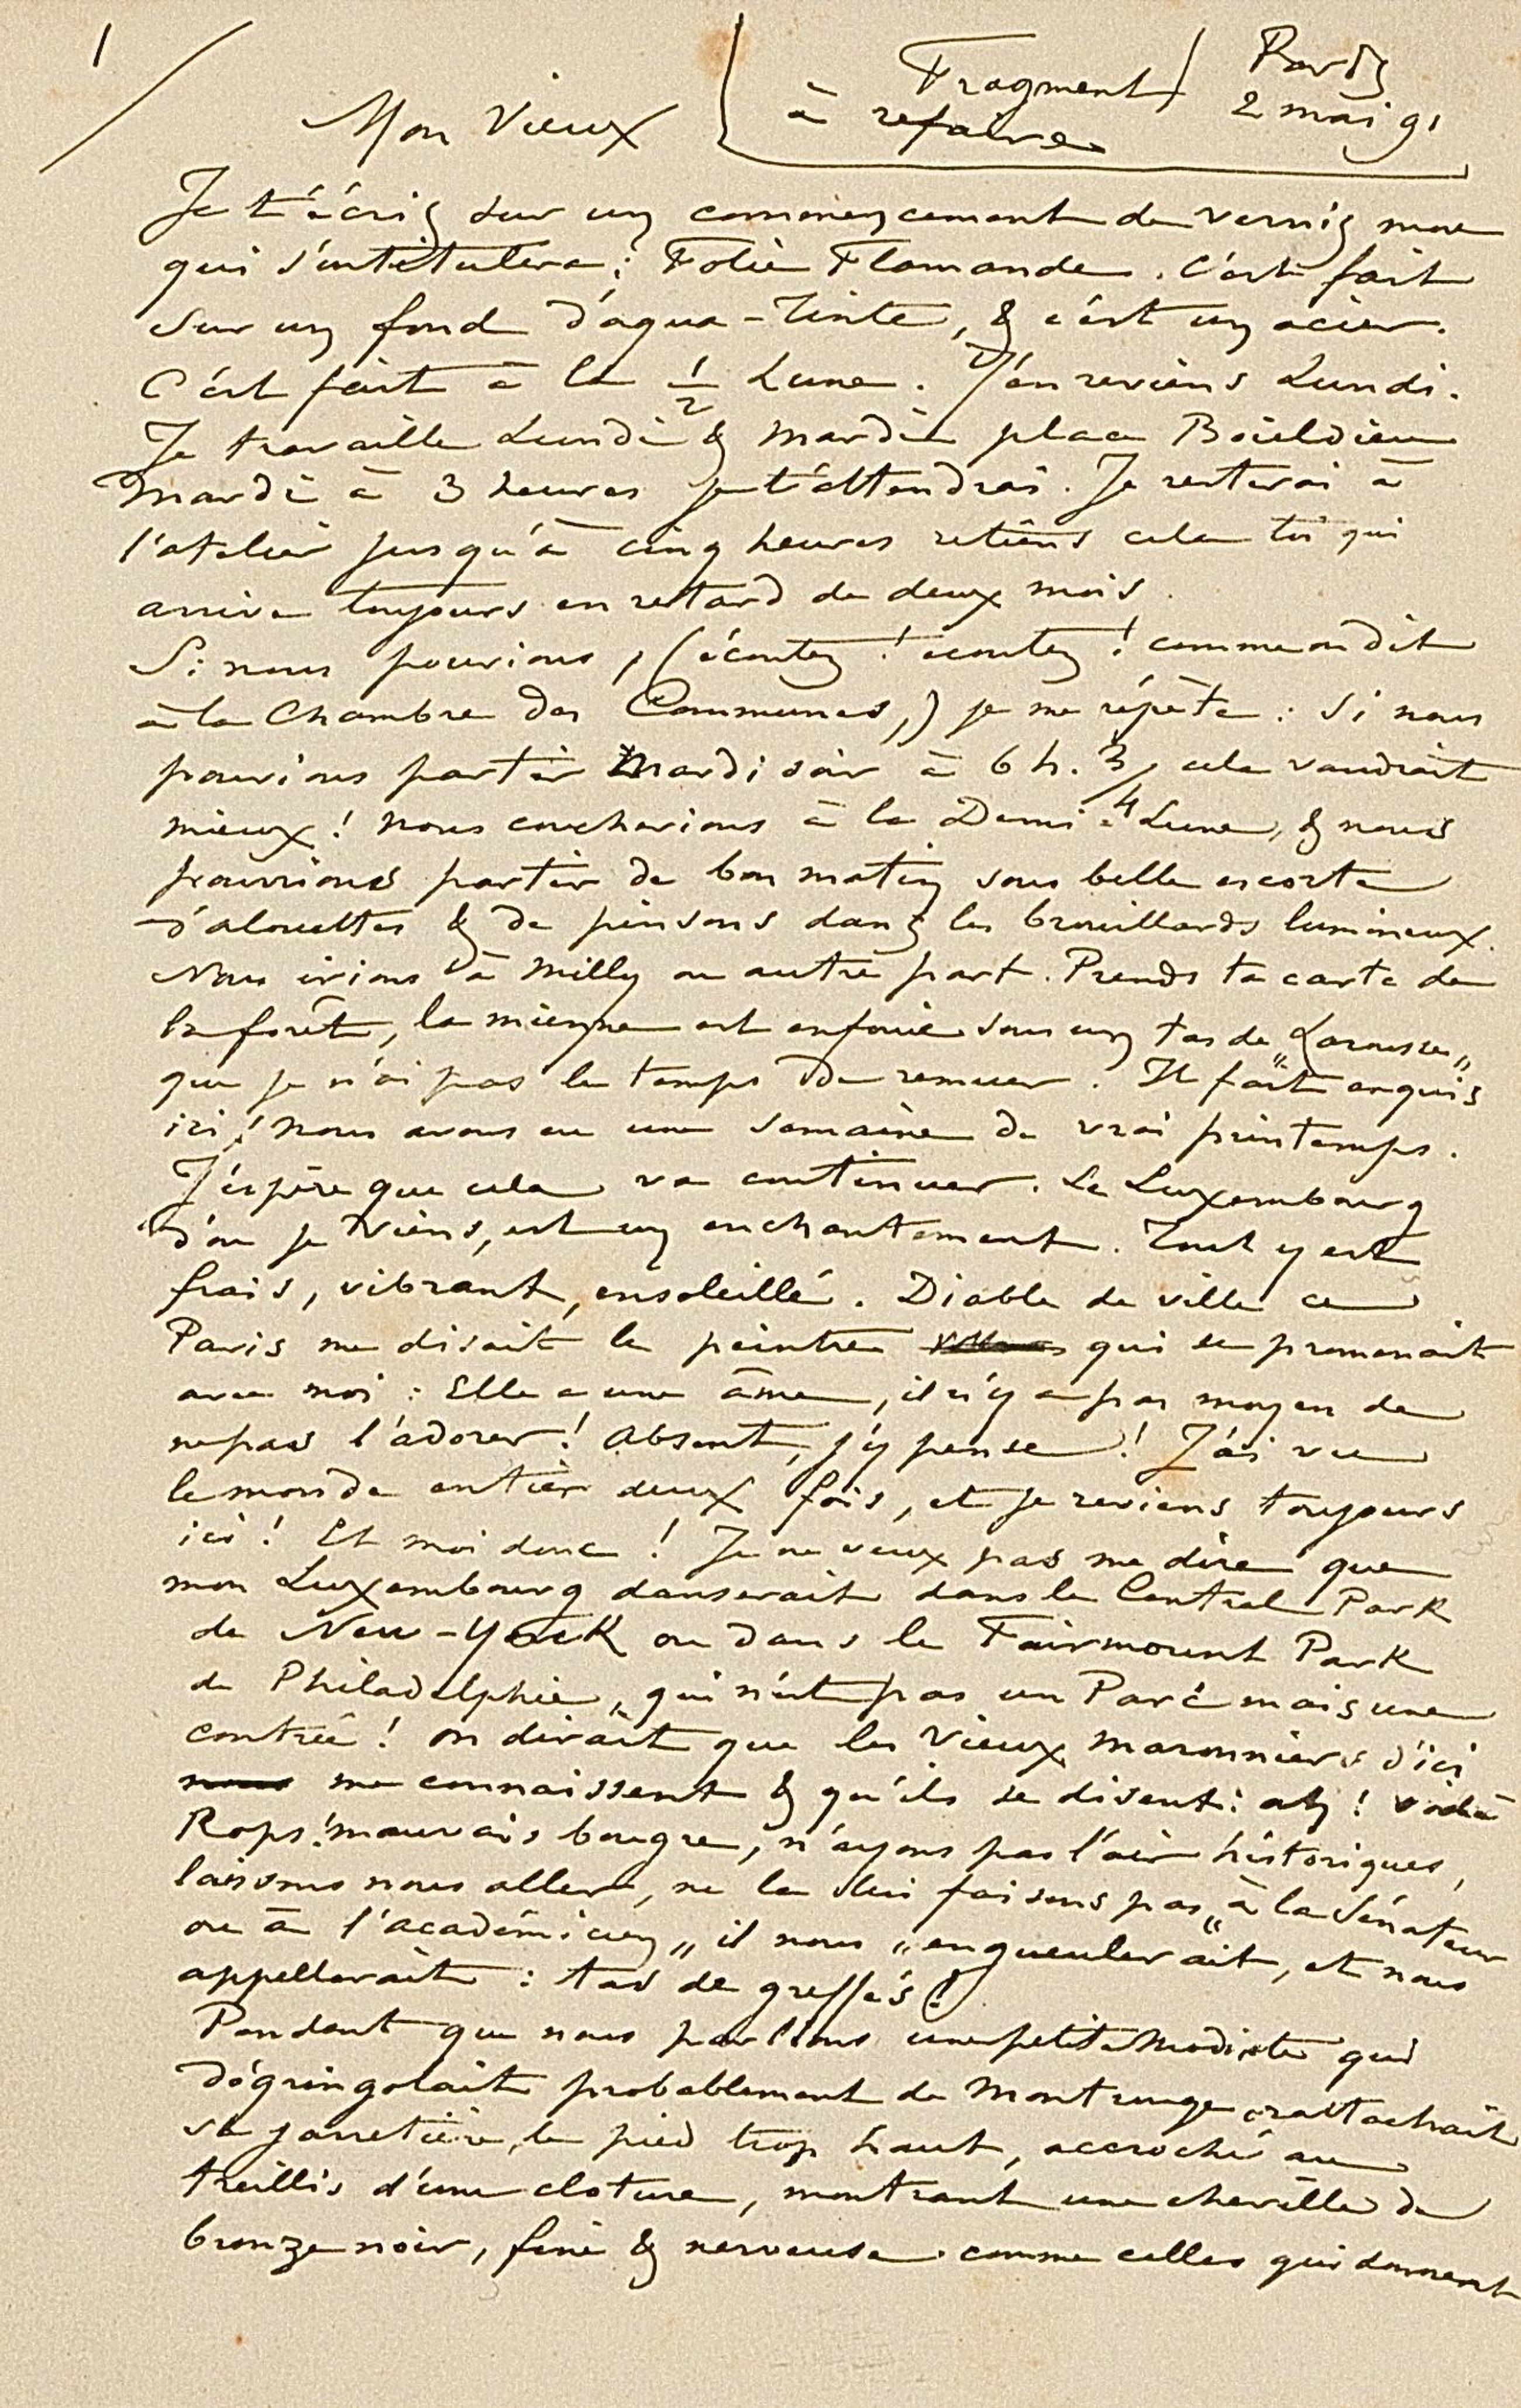 1
Fragment
à refaire
Paris
2 mai 91
Mon Vieux
Je t'écris sur un commencement de vernis mou
qui s'intitulera : Folie Flamande. C'est fait
sur un fond d'aqua-Tinte, & c'est un acier.
C'est fait à la 1/2 Lune. J'en reviens Lundi.
Je travaille Lundi & Mardi place Boieldieu
Mardi à 3 heures je t'attendrai. Je resterai à
l'atelier jusqu'à cinq heures retiens cela toi qui
arrive toujours en retard de deux mois.
Si nous pouvions, (écoutez ! écoutez ! comme on dit
à la Chambre des Communes,) je me répète : Si nous
pouvions partir Mardi soir à 6 h. 3/4 cela vaudrait
mieux ! nous coucherions à la Demi-Lune, & nous
pourrions partir de bon matin sous belle escorte
d'alouettes & de pinsons dans les brouillards lumineux.
Nous irions à Milly ou autre part. Prends ta carte de
la forêt, la mienne est enfouie sous un tas de „Larousse„
que je n'ai pas le temps de remuer. Il fait exquis
ici ! nous avons eu une semaine de vrai printemps.
J'espère que cela va continuer. Le Luxembourg
d'où je viens, est un enchantement. Tout y est
frais, vibrant, ensoleillé. Diable de ville ce
Paris me disait le peintre qui se promenait
avec moi : Elle a une âme, il n'y a pas moyen de
ne pas l'adorer ! Absent, j'y pense ! J'ai vu
le monde entier deux fois, et je reviens toujours
ici ! Et moi donc ! Je ne veux pas me dire que
mon Luxembourg danserait dans le Central Park
de New-Yorck ou dans le Fairmount Park
de Philadelphie, qui n'est pas un Parc mais une
contrée ! on dirait que les Vieux maronniers d'ici
me connaissent & qu'ils se disent : ah ! voilà
Rops ! mauvais bougre, n'ayons pas l'air historiques,
laissons nous aller, ne la lui faisons pas „à la Sénateur
ou à l'académicien„ il nous „engueulerait, et nous
appellerait : tas de greffés !
Pendant que nous parlions une petite Modiste qui
dégringolait probablement de Montrouge rattachait
sa jarretière, le pied trop haut, accroché au
treillis d'une cloture, montrant une cheville de
bronze noir, fine & nerveuse comme celles qui donnent